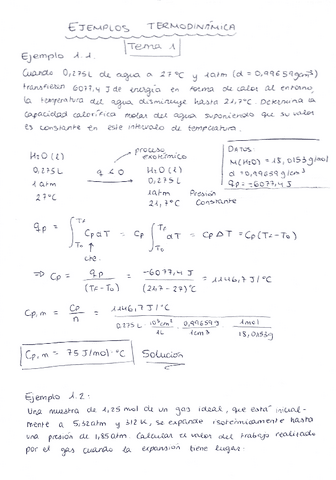 EJEMPLOS TERMODINÁMICA
Tema 1
Ejemplo 1.1
Cuando 0,275L de agua a 27ºC y 1atm (d = 0,99659 g/cm³)
transfieren 6077,4 J de energía en forma de calor al entorno,
la temperatura del agua disminuye hasta 21,7ºC. Determina la
capacidad calorífica molar del agua suponiendo que su valor
es constante en este intervalo de temperatura.
H₂O (l) proceso exotérmico H₂O (l)
0,275L q < 0 0,275 L
1atm 1atm Presión
27ºC 21,7ºC Constante
DATOS:
M(H₂O) = 18,0153g/mol
d = 0,99659 g/cm³
qp = -6077,4J
qp = ∫ Cp dT = Cp ∫ dT = Cp ΔT = Cp (Tf - T₀)
cte.
⇒ Cp = qp / (Tf - T₀) = -6077,4 J / (21,7 - 27)ºC = 1146,7 J/ºC
Cp,m = Cp / n = 1146,7 J/ºC / 0,275L · 10³cm³/1L · 0,99659g/1cm³ · 1mol/18,0153g
Cp,m = 75 J/mol·ºC Solución
Ejemplo 1.2:
Una muestra de 1,25 mol de un gas ideal, que está inicial-
mente a 5,32atm y 312K, se expande isotérmicamente hasta
una presión de 1,85atm. Calcular el valor del trabajo realizado
por el gas cuando la expansión tiene lugar: